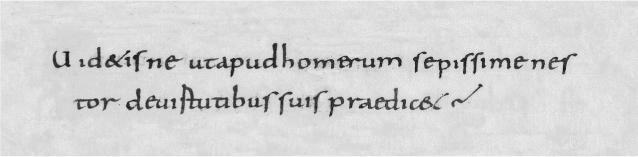 Uid&isne utapudhomerum sepissimenes
tor deuirtutibussuis praedic&